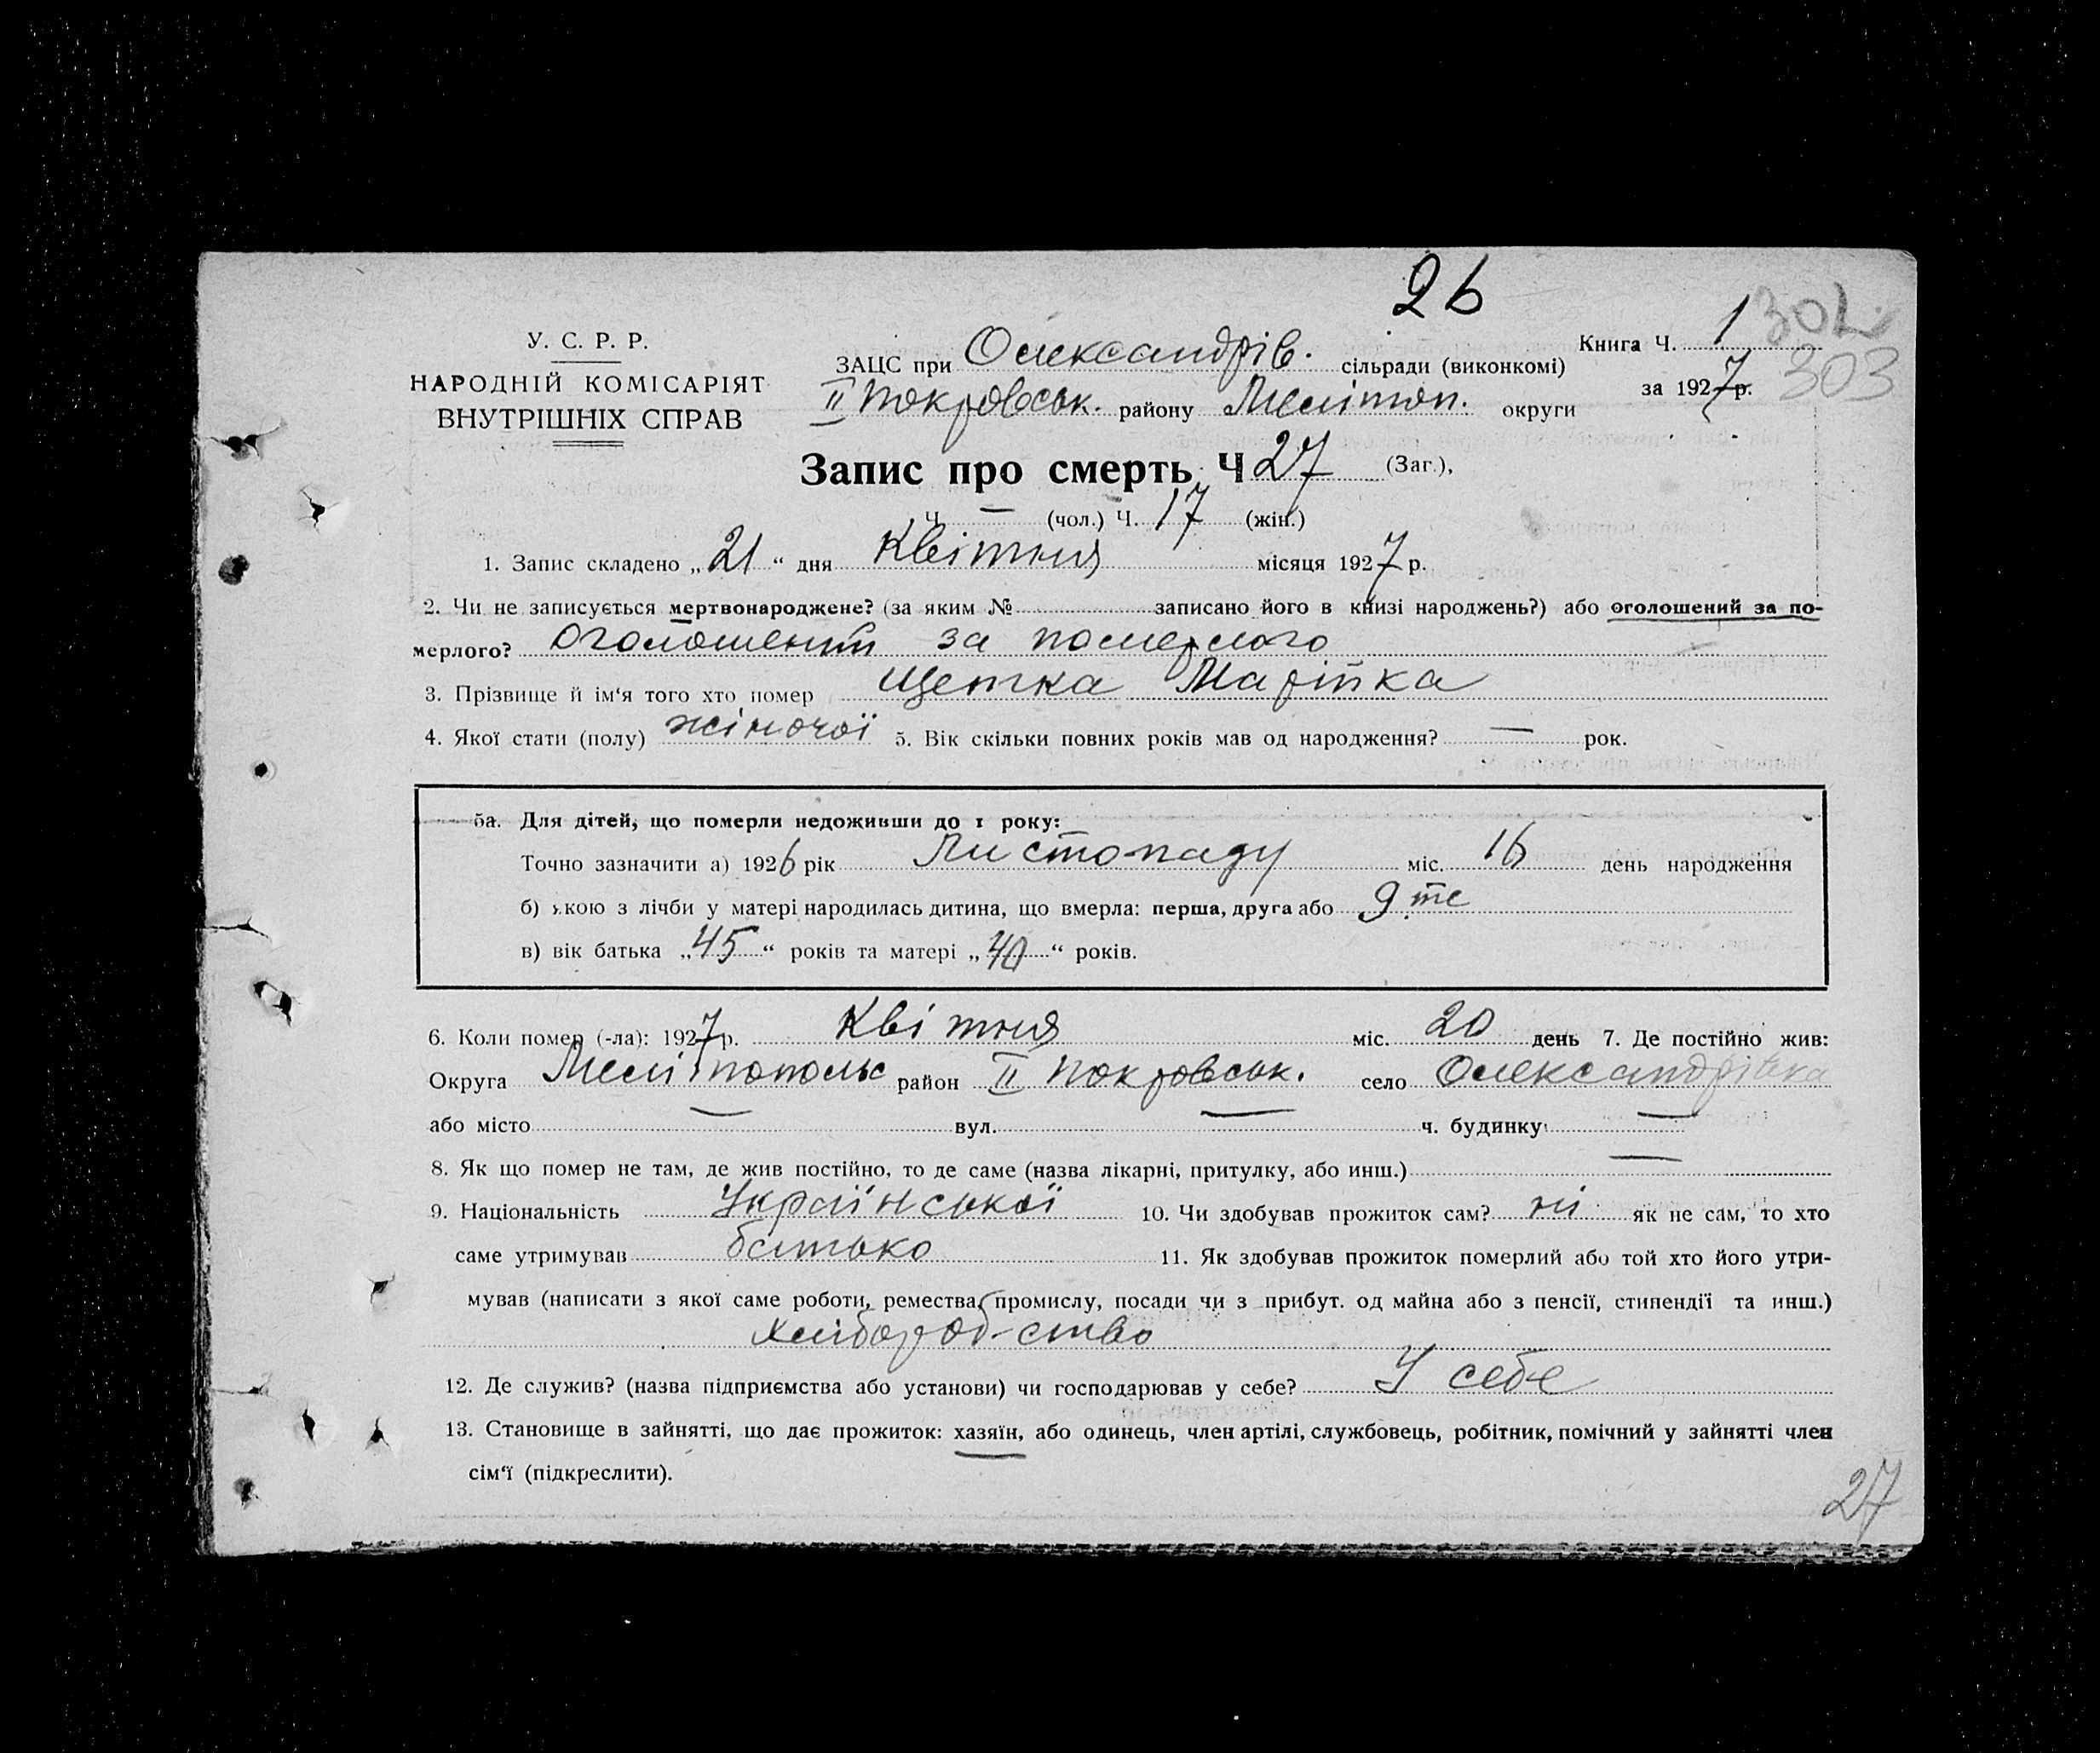 26
У. С. Р. Р.
НАРОДНІЙ КОМІСАРІЯТ
ВНУТРІШНІХ СПРАВ
ЗАЦС при Олександрів. сільради (виконкомі)
II Покровськ. району Меліноп. округи
Книга Ч. 1
302
за 1927 р. 303
Запис про смерть Ч 27 (Заг.),
Ч. — (чол.) Ч. 17 (жін.)
1. Запис складено „21“ дня Квітня місяця 1927 р.
2. Чи не записується мертвонароджене? (за яким № записано його в книзі народжень?) або оголошений за по-
мерлого? Оголошений за померлого
3. Прізвище й ім'я того хто помер Щетка Марійка
4. Якої стати (полу) жіночої 5. Вік скільки повних років мав од народження? — рок.
5а. Для дітей, що померли недоживши до 1 року:
Точно зазначити а) 1926 рік Листопаду міс. 16 день народження
б) якою з лічби у матері народилась дитина, що вмерла: перша, друга або 9 те
в) вік батька „45“ років та матері „40“ років.
6. Коли помер (-ла): 1927 р. Квітня міс. 20 день 7. Де постійно жив:
Округа Мелітопольс район II Покровськ. село Олександрівка
або місто — вул. — ч. будинку —
8. Як що помер не там, де жив постійно, то де саме (назва лікарні, притулку, або инш.) —
9. Національність Української 10. Чи здобував прожиток сам? ні як не сам, то хто
саме утримував батько 11. Як здобував прожиток померлий або той хто його утри-
мував (написати з якої саме роботи, ремества, промислу, посади чи з прибут. од майна або з пенсії, стипендії та инш.)
хліборобство
12. Де служив? (назва підприємства або установи) чи господарював у себе? У себе
13. Становище в зайнятті, що дає прожиток: хазяїн, або одинець, член артілі, службовець, робітник, помічний у зайнятті член
сім'ї (підкреслити).
27